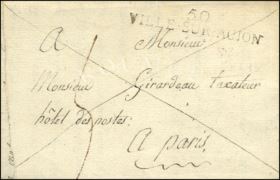 50
VILLE-SUR-AUJON
A Monsieur
Monsieur Girardeau taxateur
hôtel des postes
A paris